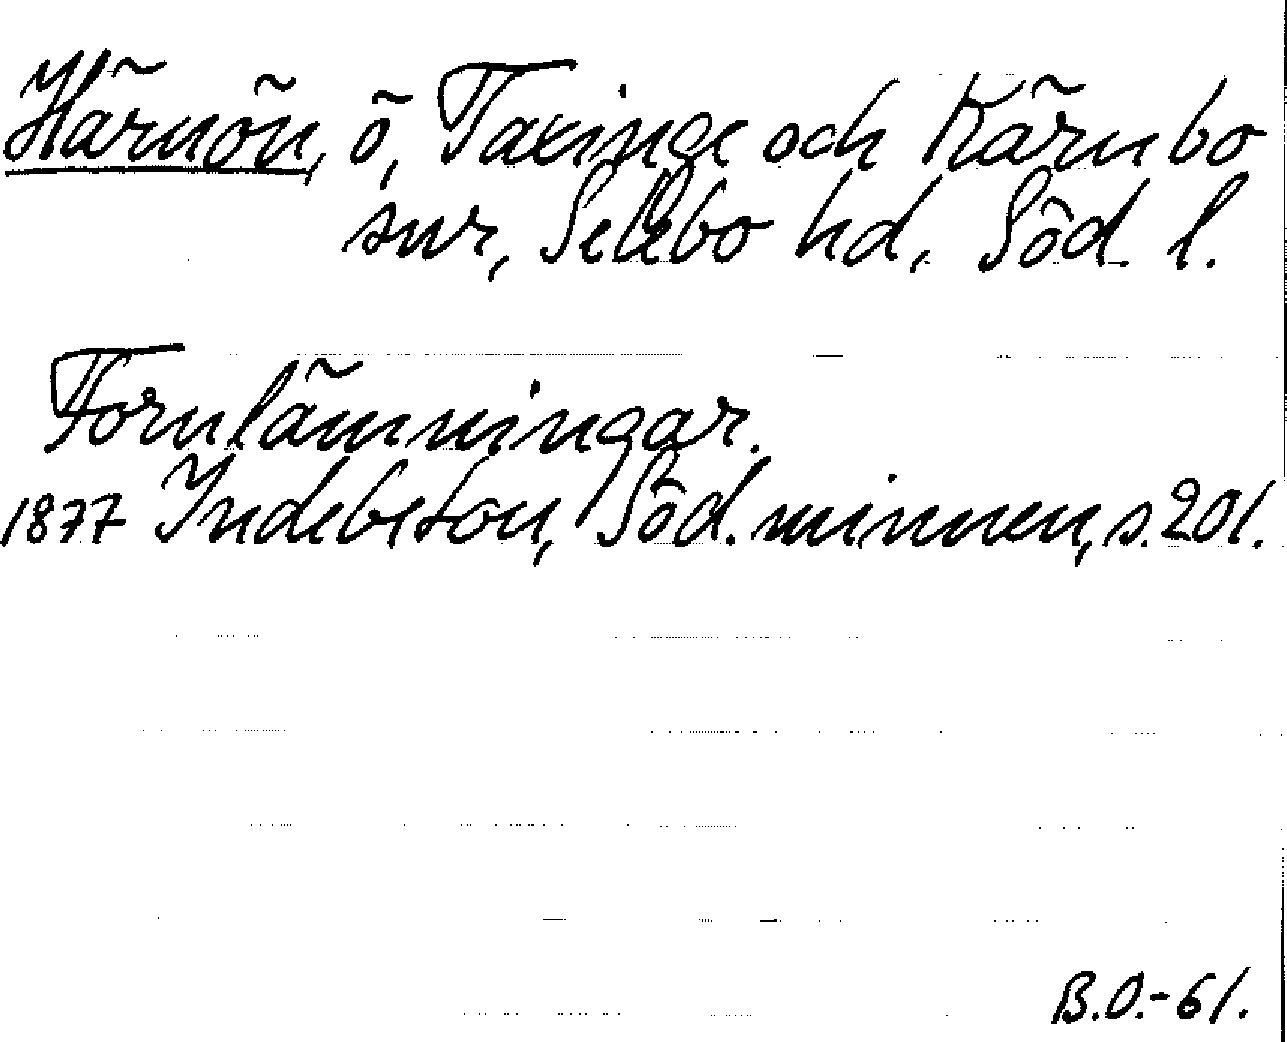 Härnön, ö, Taxinge och Kärnbo
snr, Selebo hd, Söd. l.
Fornlämningar.
1877 Indebetou, Söd. minnen, s. 201.
B.O.-61.